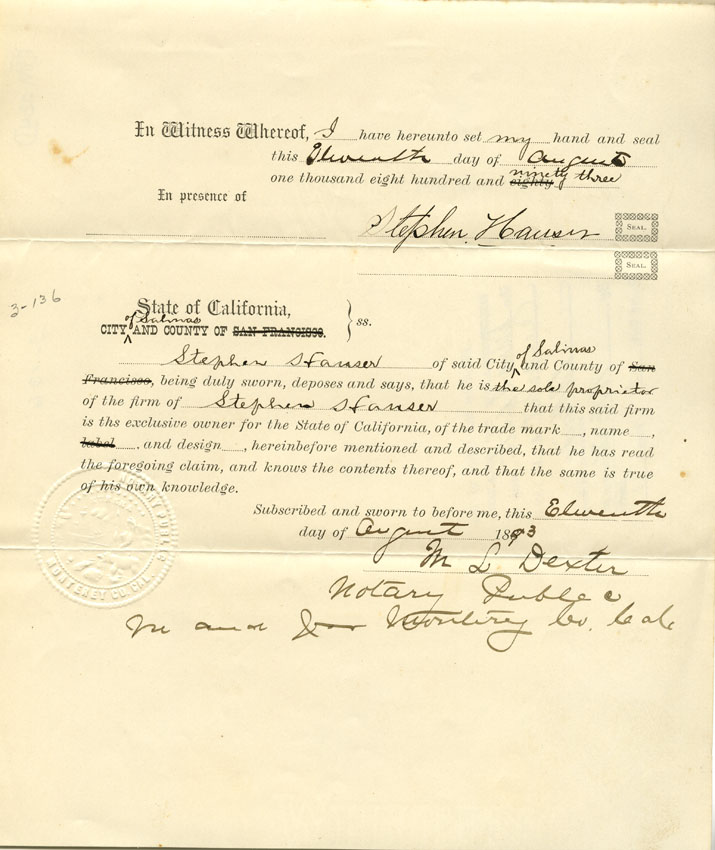 In Witness Whereof, I have hereunto set my hand and seal
this Eleventh day of August
one thousand eight hundred and eighty ninety three
In presence of
Stephen Hauser SEAL.
SEAL.
3-136
State of California,
of Salinas
CITY AND COUNTY OF SAN FRANCISCO. } ss.
of Salinas
Stephen Hauser of said City and County of San
Francisco, being duly sworn, deposes and says, that he is the sole proprietor
of the firm of Stephen Hauser that this said firm
is ths exclusive owner for the State of California, of the trade mark , name ,
label , and design , hereinbefore mentioned and described, that he has read
the foregoing claim, and knows the contents thereof, and that the same is true
of his own knowledge.
Subscribed and sworn to before me, this Elwenth
day of August 1893
M L Dexter
Notary Public
In and for Monterey Co. Cal
NOTARY PUBLIC
MONTEREY CO. CAL.